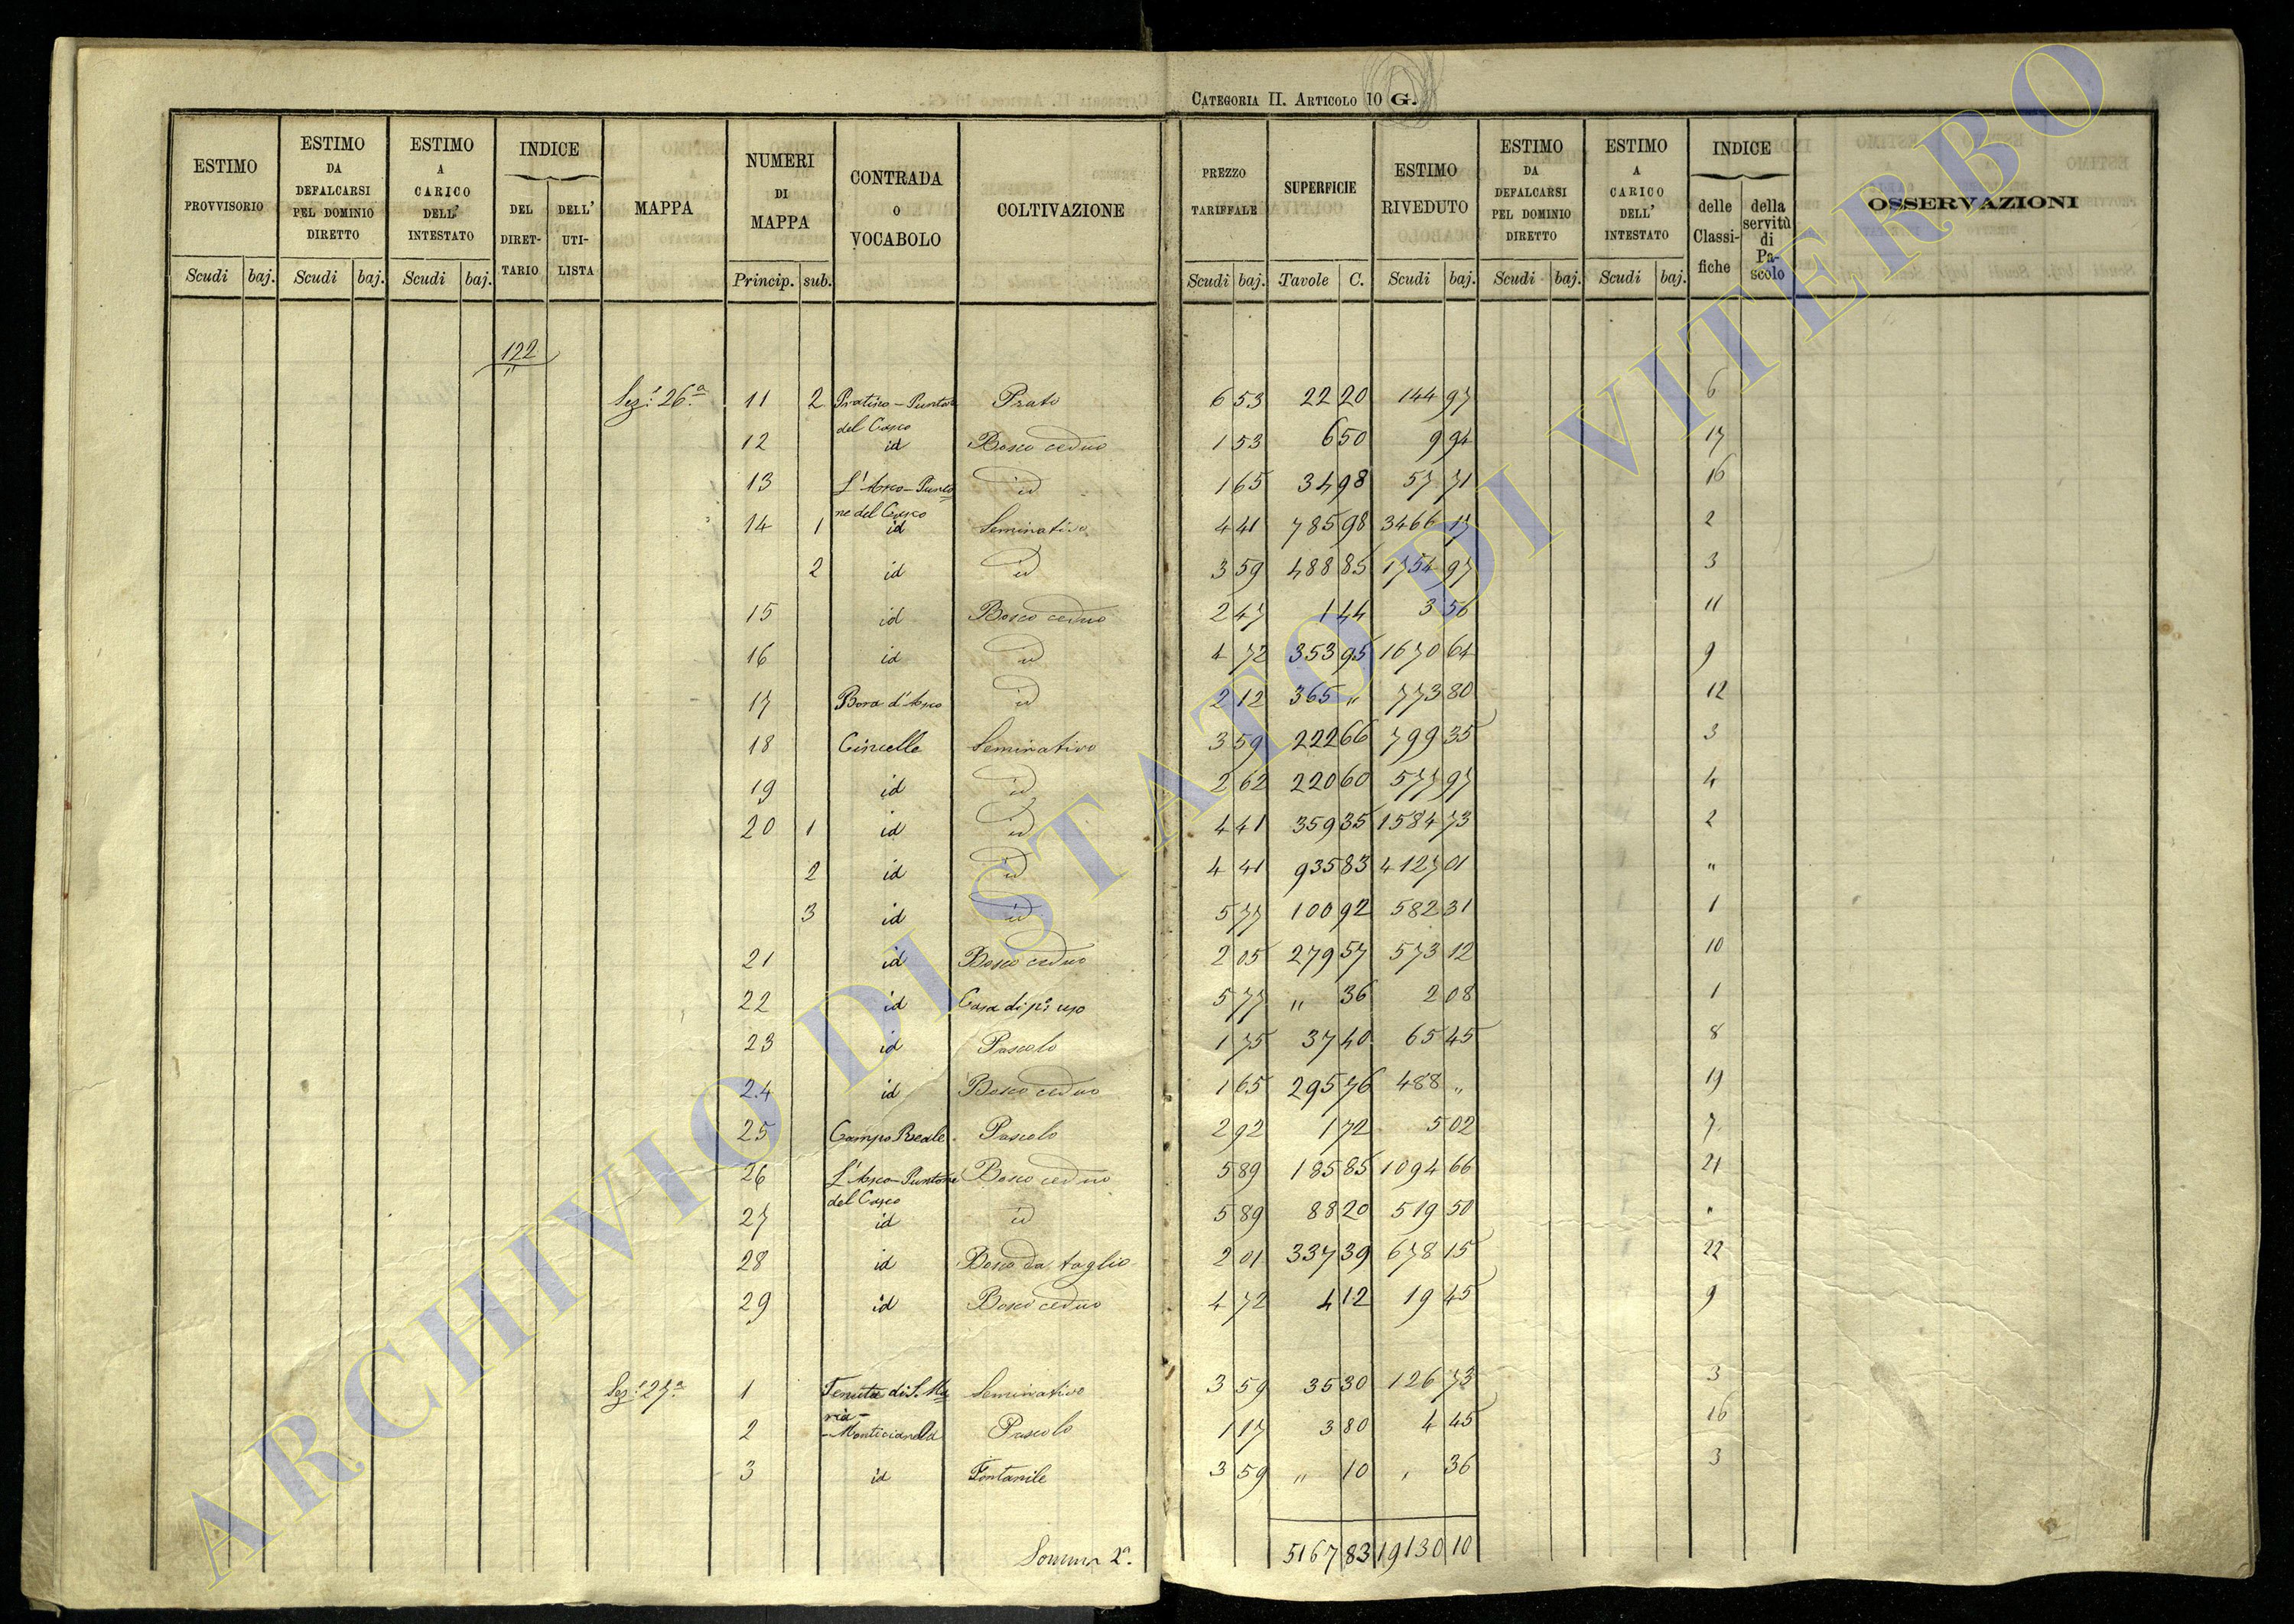 CATEGORIA II. ARTICOLO 10 G.
ESTIMO PROVVISORIO Scudi baj.
ESTIMO DA DEFALCARSI PEL DOMINIO DIRETTO Scudi baj.
ESTIMO A CARICO DELL' INTESTATO Scudi baj.
INDICE DEL DIRETTARIO DELL' UTILISTA
MAPPA
NUMERI DI MAPPA Princip. sub.
CONTRADA O VOCABOLO
COLTIVAZIONE
PREZZO TARIFFALE Scudi baj.
SUPERFICIE Tavole C.
ESTIMO RIVEDUTO Scudi baj.
ESTIMO DA DEFALCARSI PEL DOMINIO DIRETTO Scudi baj.
ESTIMO A CARICO DELL' INTESTATO Scudi baj.
INDICE delle Classifiche della servitù di Pascolo
OSSERVAZIONI
122
Sez: 26.a 11 2 Pratino - Punton Prato 6 53 22 20 144 97 6
del Casco
12 id Bosco ceduo 1 53 6 50 9 94 17
13 L'Arco - Punto id 1 65 34 98 57 71 16
ne del Casco
14 1 id Seminativo 4 41 785 98 3466 17 2
2 id id 3 59 488 85 1754 97 3
15 id Bosco ceduo 2 47 1 44 3 56 11
16 id id 4 72 353 95 1670 64 9
17 Bora d'Arco id 2 12 365 " 773 80 12
18 Cincelle Seminativo 3 59 222 66 799 35 3
19 id id 2 62 220 60 577 97 4
20 1 id id 4 41 359 35 1584 73 2
2 id id 4 41 935 83 4127 01 "
3 id id 5 77 100 92 582 31 1
21 id Bosco ceduo 2 05 279 57 573 12 10
22 id Casa di po uso 5 77 " 36 2 08 1
23 id Pascolo 1 75 37 40 65 45 8
24 id Bosco ceduo 1 65 295 76 488 " 19
25 Campo Reale Pascolo 2 92 1 72 5 02 7
26 L'Arco - Puntone Bosco ceduo 5 89 185 85 1094 66 21
del Casco
27 id id 5 89 88 20 519 50 "
28 id Bosco da taglio 2 01 337 39 678 15 22
29 id Bosco ceduo 4 72 4 12 19 45 9
Sez: 27.a 1 Tenuta di S. Ma Seminativo 3 59 35 30 126 73 3
ria -
2 - Monticianella Pascolo 1 17 3 80 4 45 16
3 id Fontanile 3 59 " 10 " 36 3
Somma 2a. 5167 83 19130 10
ARCHIVIO DI STATO DI VITERBO